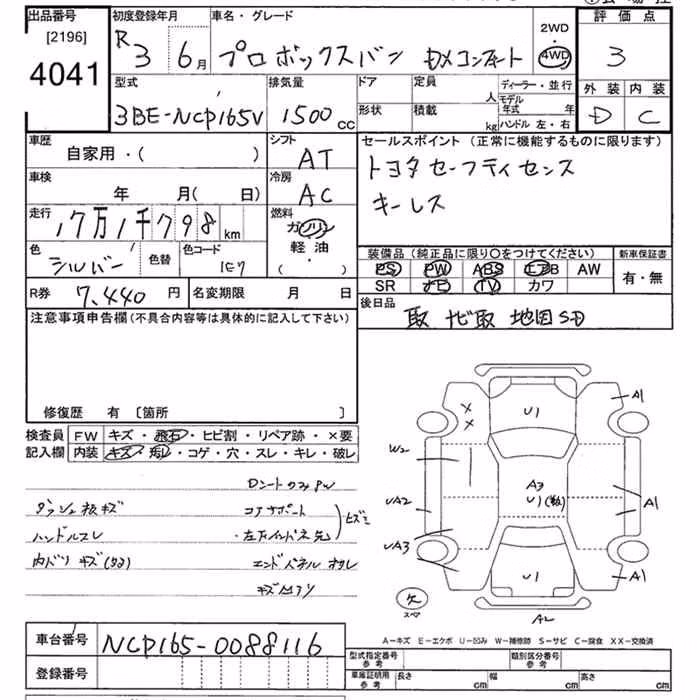 出品番号 初度登録年月 車名・グレード 評価点
[2196] R3 6月 プロボックスバン DXコンフォート 2WD 4WD 3
4041
型式 排気量 ドア 定員 人 ディーラー・並行 外装 内装
3BE-NCP165V 1500 CC 形状 積載 kg モデル年式 年 D C
ハンドル 左・右
車歴 シフト セールスポイント (正常に機能するものに限ります)
自家用・( ) AT トヨタセーフティセンス
車検 冷房
年 月(日) AC キーレス
走行 燃料
17万1千798km ガソリン
色 シルバー 色替 色コード 1E7 軽油
( )
装備品(純正品に限り○をつけてください) 新車保証書
PS PW ABS エアB AW 有・無
SR ナビ TV カワ
R券 7,440円 名変期限 月 日
後日品
取 ナビ取 地図SD
注意事項申告欄(不具合内容等は具体的に記入して下さい)
修復歴 有 [箇所 ]
検査員 FW キズ・飛石・ヒビ割・リペア跡・×要
記入欄 内装 キズ・汚レ・コゲ・穴・スレ・キレ・破レ
ダッシュ板キズ コアサポート
ハンドルスレ
内バリ キズ エンドパネル
U1
A1
W2
A3
U1
UA2
A1
UA3
U1
A1
欠
スペア
A2
車台番号 NCP165-0088116
A-キズ E-エクボ U-凹み W-補修跡 S-サビ C-腐食 XX-交換済
登録番号
型式指定番号 参考 類別区分番号 参考
車庫証明用 参考 長さ cm 幅 cm 高さ cm